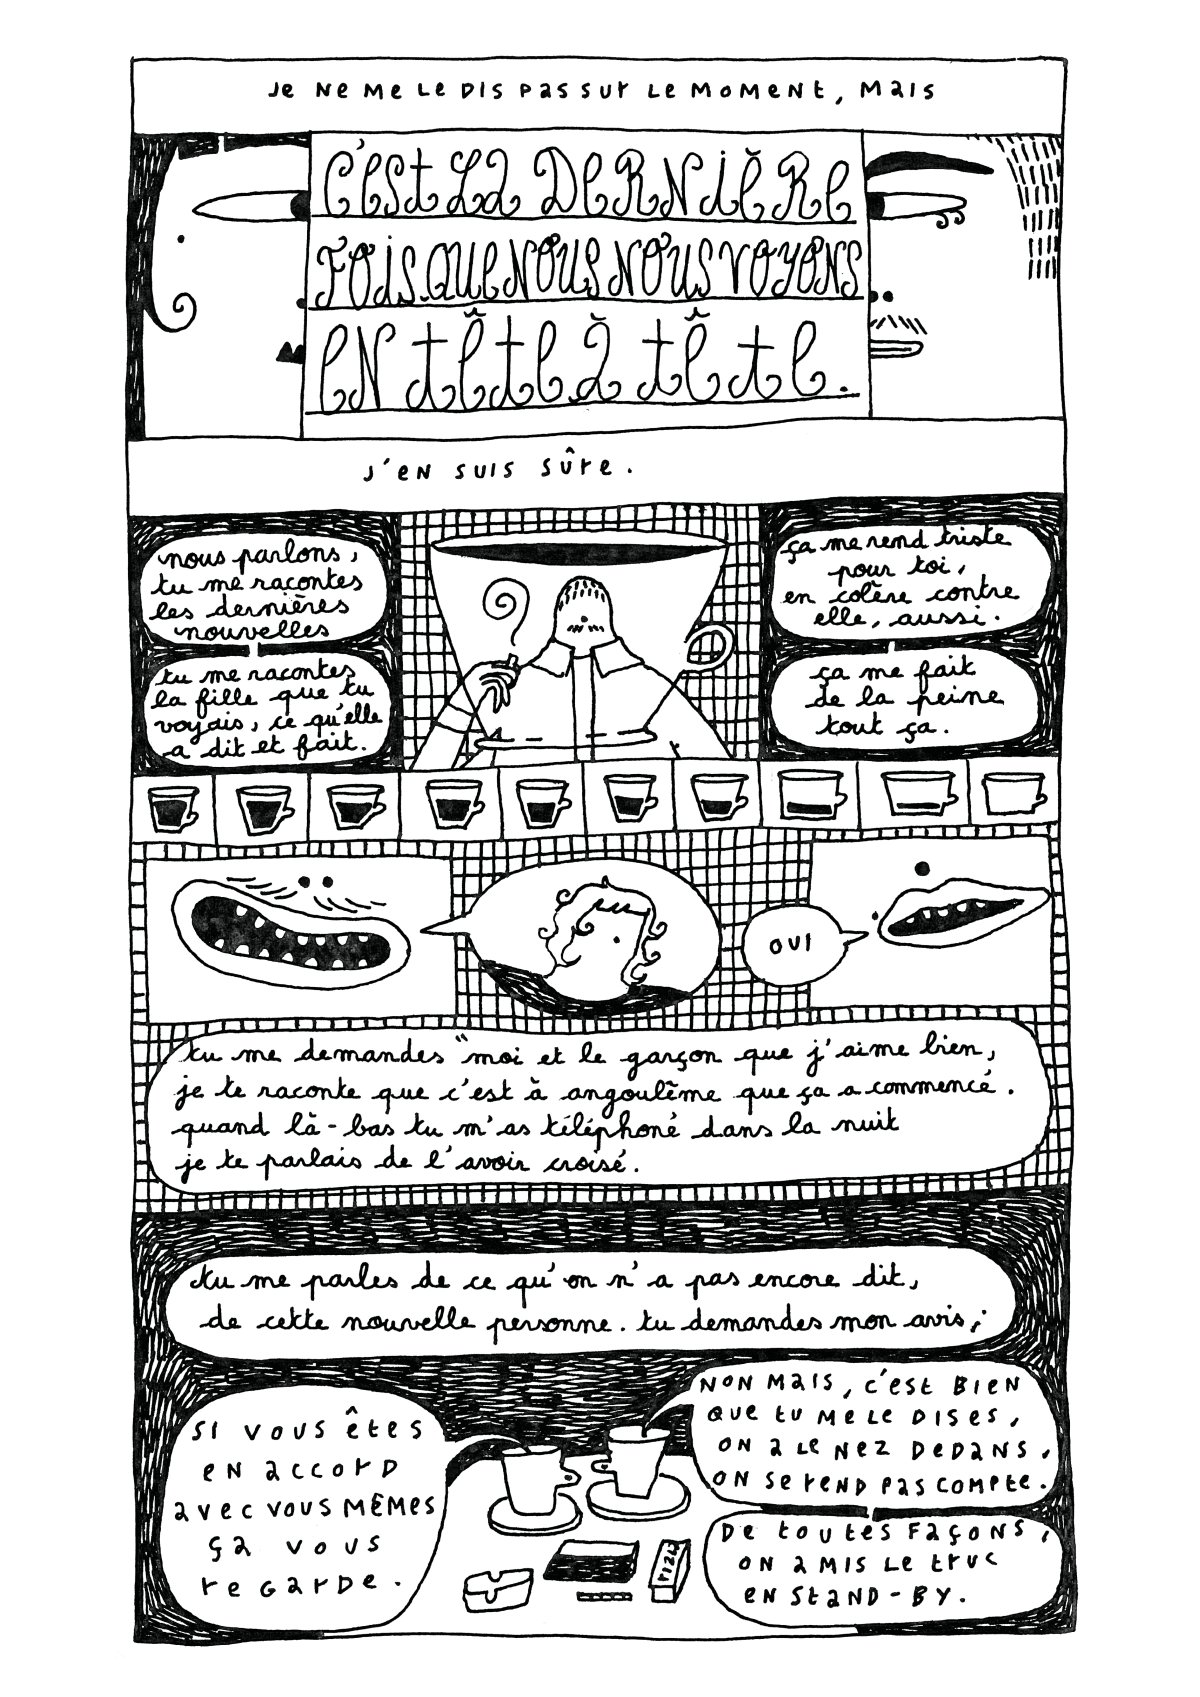 Je ne me le dis pas sur le moment, mais
C'est la dernière
fois que nous nous voyons
en tête à tête.
J'en suis sûre.
nous parlons,
tu me racontes
les dernières
nouvelles
tu me racontes
la fille que tu
voyais, ce qu'elle
a dit et fait.
ça me rend triste
pour toi,
en colère contre
elle, aussi.
ça me fait
de la peine
tout ça.
OUI
tu me demandes "moi et le garçon que j'aime bien,
je te raconte que c'est à angoulême que ça a commencé.
quand là-bas tu m'as téléphoné dans la nuit
je te parlais de l'avoir croisé.
tu me parles de ce qu'on n'a pas encore dit,
de cette nouvelle personne. tu demandes mon avis;
SI VOUS êtes
en accord
avec vous mêmes
ça vous
regarde.
Non mais, c'est bien
que tu me le dises,
on a le nez dedans,
on se rend pas compte.
De toutes façons,
on a mis le truc
en stand-by.